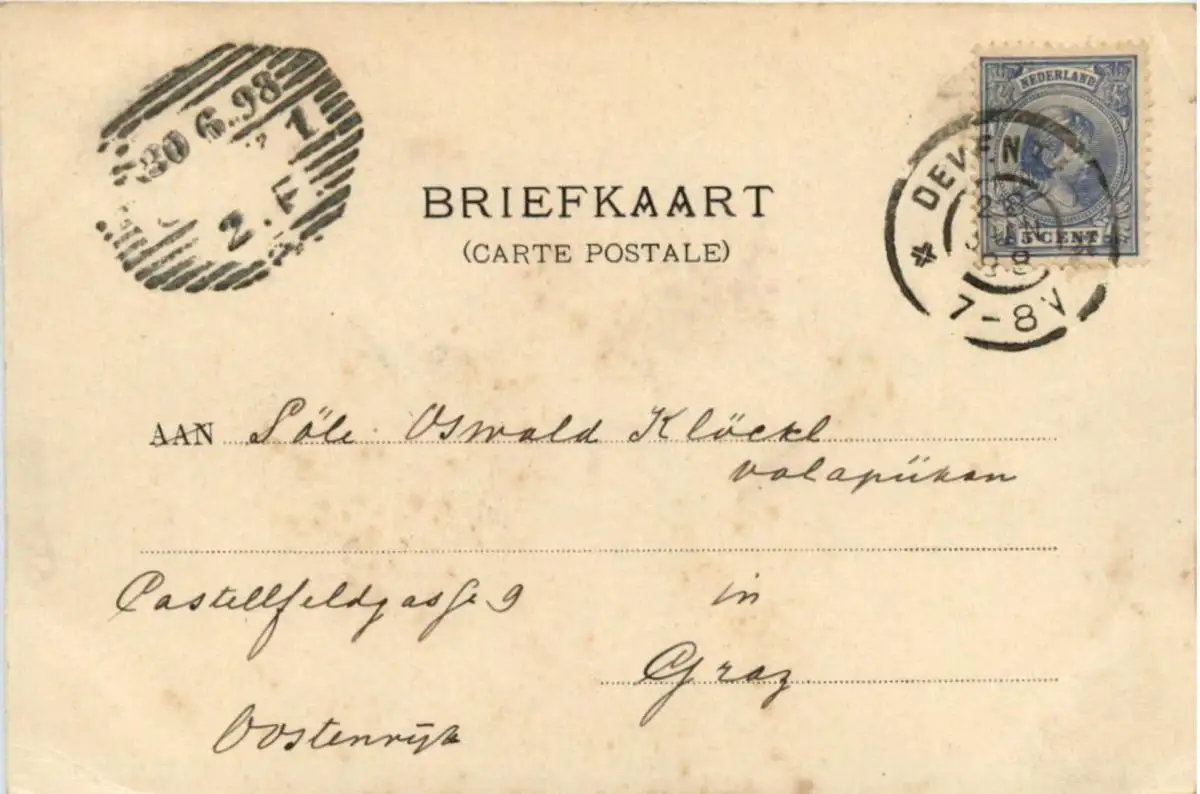 30 6.98
1
2.F.
NEDERLAND
5 CENT
DEVENTE
28
JUN
98
7-8V
BRIEFKAART
(CARTE POSTALE)
AAN Söle Oswald Klöckl
volapükan
Castellfeldgasse 9 in
Graz
Oostenrijk